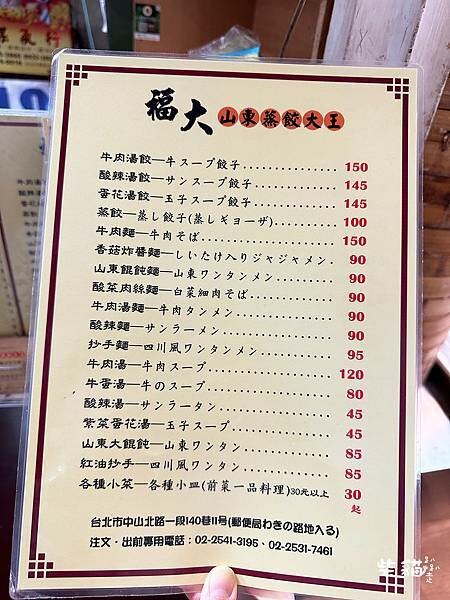 福大 山東蒸餃大王
牛肉湯餃—牛スープ餃子 150
酸辣湯餃—サンスープ餃子 145
蛋花湯餃—玉子スープ餃子 145
蒸餃—蒸し餃子(蒸しギョーザ) 100
牛肉麵—牛肉そば 150
香菇炸醬麵—しいたけ入りジャジャメン 90
山東餛飩麵—山東ワンタンメン 90
酸菜肉絲麵—白菜細肉そば 90
牛肉湯麵—牛肉タンメン 90
酸辣麵—サンラーメン 90
抄手麵—四川風ワンタンメン 95
牛肉湯—牛肉スープ 120
牛蛋湯—牛のスープ 80
酸辣湯—サンラータン 45
紫菜蛋花湯—玉子スープ 45
山東大餛飩—山東ワンタン 85
紅油抄手—四川風ワンタン 85
各種小菜—各種小皿(前菜一品料理)30元以上 30起
台北市中山北路一段140巷11号(郵便局わきの路地入る)
注文・出前專用電話：02-2541-3195、02-2531-7461